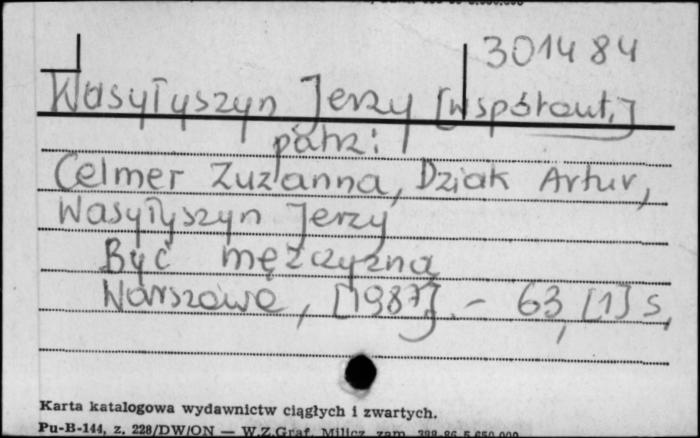 301484
Wasyłyszyn Jerzy [współaut.]
patrz:
Celmer Zuzanna, Dziak Artur,
Wasyłyszyn Jerzy
Być mężczyzną
Warszawa, [1987]. – 63, [1] s.
Karta katalogowa wydawnictw ciągłych i zwartych.
Pu-B-144, z. 228/DW/ON — W.Z.Graf. Milicz, zam. 398-86 5.650.000